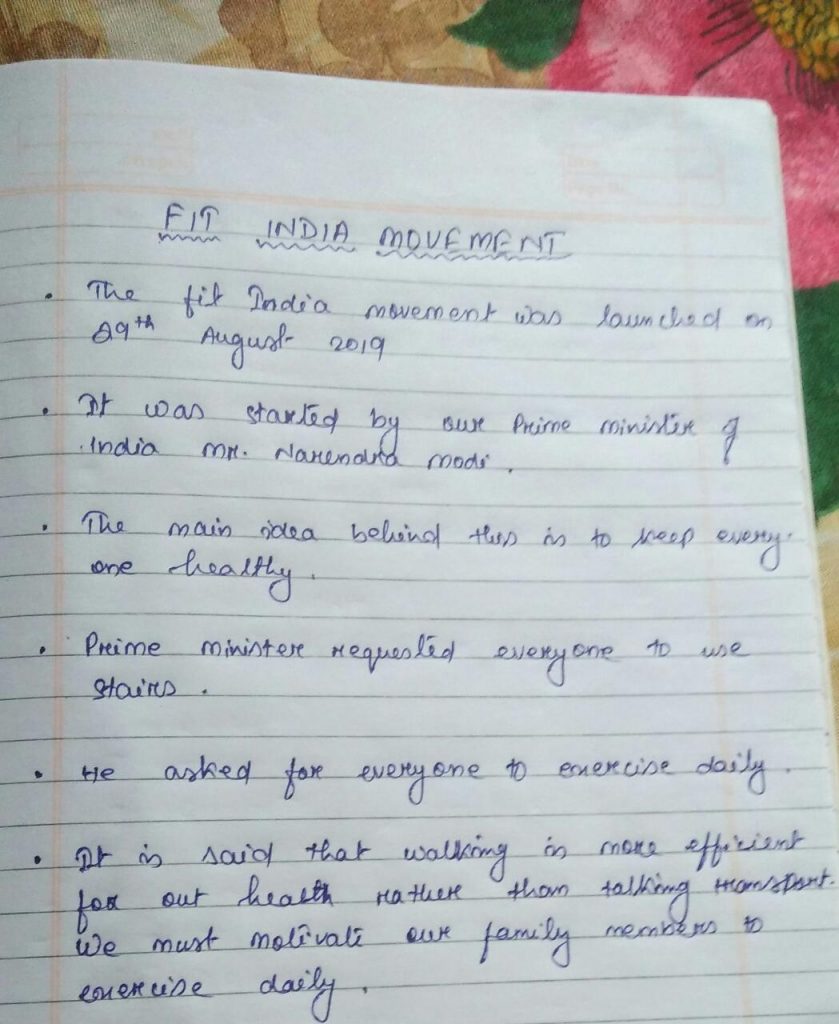 FIT INDIA MOVEMENT
• The fit India movement was launched on
29th August 2019
• It was started by our Prime minister of
India Mr. Narendra Modi.
• The main idea behind this is to keep every-
one healthy.
• Prime minister requested everyone to use
stairs.
• He asked for everyone to exercise daily.
• It is said that walking is more efficient
for out health rather than talking transport.
We must motivate our family members to
exercise daily.